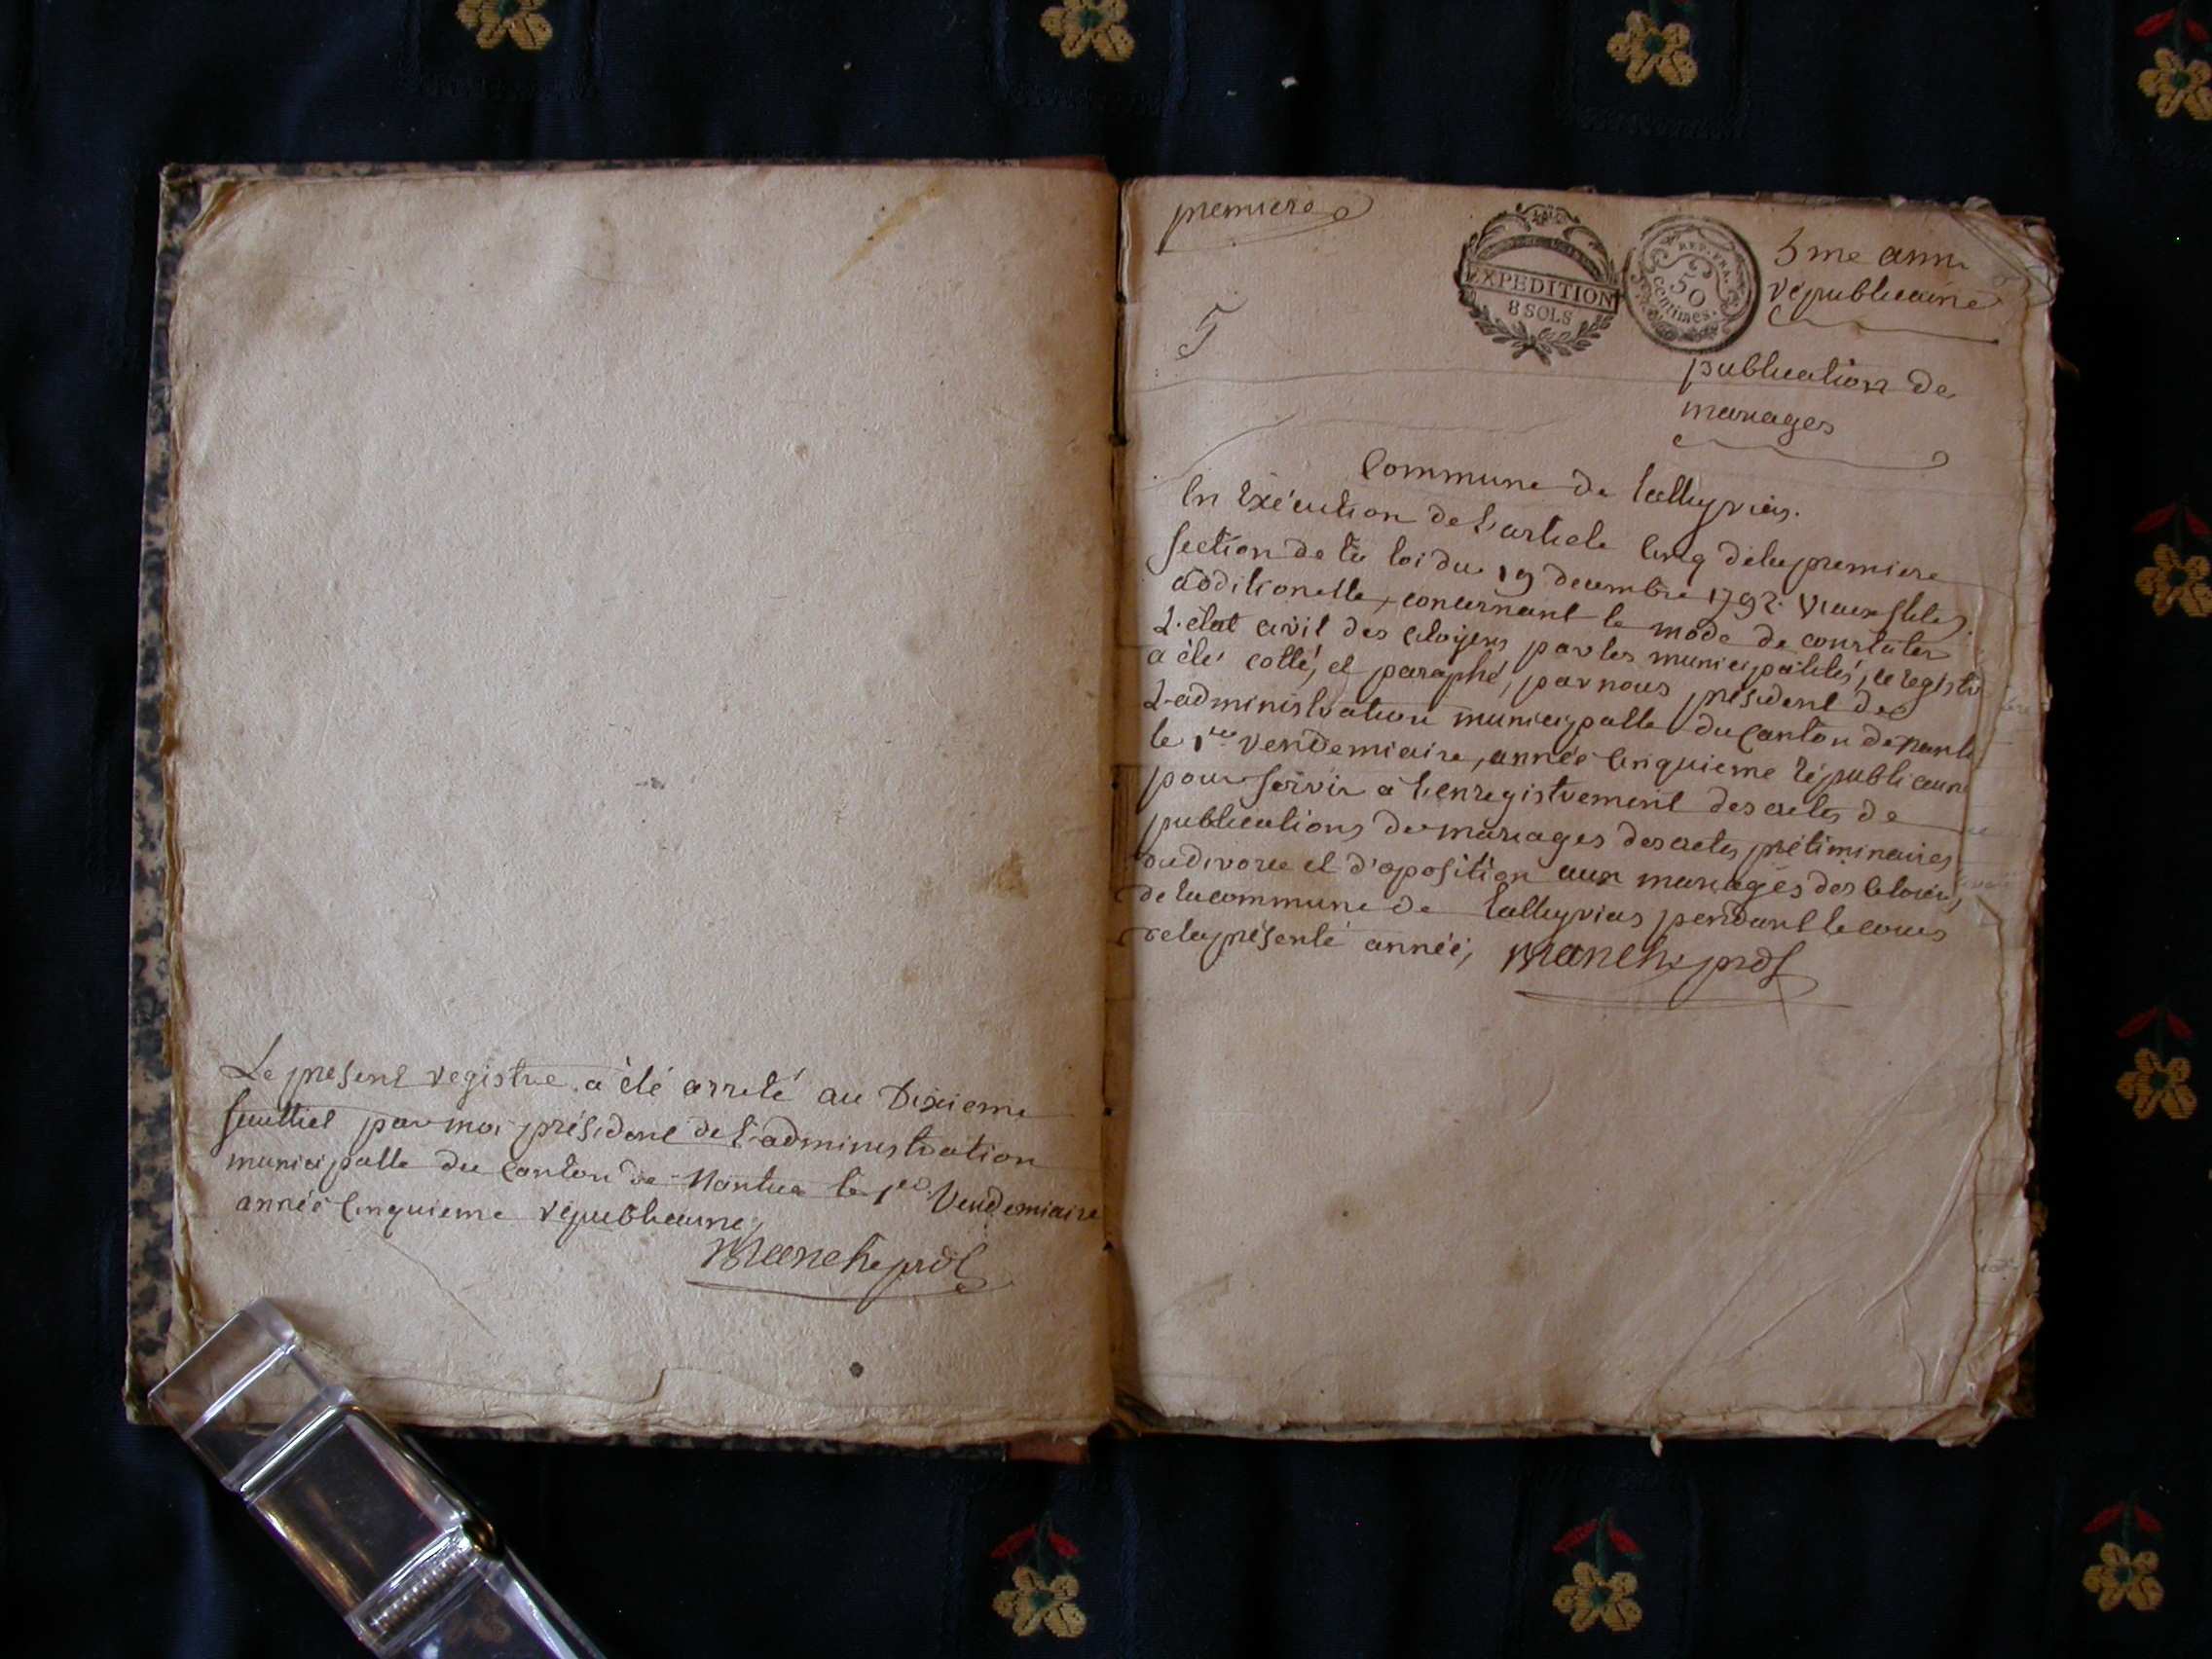 Le present registre a été arreté au Dixieme
feuillet par moi président de L'administration
municipalle du Canton de Nantua le 1er Vendemiaire
année Cinquieme républicaine,
Manche pdt
premiere
EXPEDITION
8 SOLS
REP. FRA.
50
centimes.
5me anné
républicaine
5
publication de
mariages
Commune de Lalleyriat.
En Exécution de L'article Cinq de la premiere
section de la loi du 19 decembre 1792. vieux stile
additionelle, concernant le mode de constater
L'état civil des citoyens par les municipalités, ce registre
a été cotté, et paraphé, par nous président de
L'administration municipalle du Canton de Nantua
le 1er vendemiaire, année Cinquieme républicaine
pour servir a l'enregistrement des actes de
publications de mariages des actes préliminaires
au divorce et d'oposition aux mariages des Citoiens
de la commune de Lalleyriat pendant le cours
de la présente année,
Manche pdt